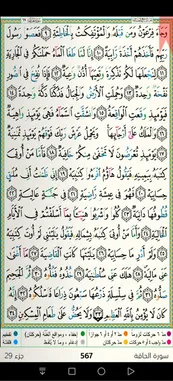 وَجَآءَ فِرْعَوْنُ وَمَن قَبْلَهُۥ وَٱلْمُؤْتَفِكَٰتُ بِٱلْخَاطِئَةِ ٩ فَعَصَوْا۟ رَسُولَ
رَبِّهِمْ فَأَخَذَهُمْ أَخْذَةً رَّابِيَةً ١٠ إِنَّا لَمَّا طَغَا ٱلْمَآءُ حَمَلْنَٰكُمْ فِى ٱلْجَارِيَةِ
١١ لِنَجْعَلَهَا لَكُمْ تَذْكِرَةً وَتَعِيَهَآ أُذُنٌ وَٰعِيَةٌ ١٢ فَإِذَا نُفِخَ فِى ٱلصُّورِ
نَفْخَةٌ وَٰحِدَةٌ ١٣ وَحُمِلَتِ ٱلْأَرْضُ وَٱلْجِبَالُ فَدُكَّتَا دَكَّةً وَٰحِدَةً ١٤
فَيَوْمَئِذٍ وَقَعَتِ ٱلْوَاقِعَةُ ١٥ وَٱنشَقَّتِ ٱلسَّمَآءُ فَهِىَ يَوْمَئِذٍ وَاهِيَةٌ
١٦ وَٱلْمَلَكُ عَلَىٰٓ أَرْجَآئِهَا وَيَحْمِلُ عَرْشَ رَبِّكَ فَوْقَهُمْ يَوْمَئِذٍ ثَمَٰنِيَةٌ
١٧ يَوْمَئِذٍ تُعْرَضُونَ لَا تَخْفَىٰ مِنكُمْ خَافِيَةٌ ١٨ فَأَمَّا مَنْ أُوتِىَ
كِتَٰبَهُۥ بِيَمِينِهِۦ فَيَقُولُ هَآؤُمُ ٱقْرَءُوا۟ كِتَٰبِيَهْ ١٩ إِنِّى ظَنَنتُ أَنِّى مُلَٰقٍ
حِسَابِيَهْ ٢٠ فَهُوَ فِى عِيشَةٍ رَّاضِيَةٍ ٢١ فِى جَنَّةٍ عَالِيَةٍ ٢٢
قُطُوفُهَا دَانِيَةٌ ٢٣ كُلُوا۟ وَٱشْرَبُوا۟ هَنِيٓـًٔۢا بِمَآ أَسْلَفْتُمْ فِى ٱلْأَيَّامِ
ٱلْخَالِيَةِ ٢٤ وَأَمَّا مَنْ أُوتِىَ كِتَٰبَهُۥ بِشِمَالِهِۦ فَيَقُولُ يَٰلَيْتَنِى لَمْ أُوتَ كِتَٰبِيَهْ
٢٥ وَلَمْ أَدْرِ مَا حِسَابِيَهْ ٢٦ يَٰلَيْتَهَا كَانَتِ ٱلْقَاضِيَةَ ٢٧ مَآ أَغْنَىٰ
عَنِّى مَالِيَهْ ٢٨ هَلَكَ عَنِّى سُلْطَٰنِيَهْ ٢٩ خُذُوهُ فَغُلُّوهُ ٣٠ ثُمَّ ٱلْجَحِيمَ
صَلُّوهُ ٣١ ثُمَّ فِى سِلْسِلَةٍ ذَرْعُهَا سَبْعُونَ ذِرَاعًا فَٱسْلُكُوهُ ٣٢ إِنَّهُۥ
كَانَ لَا يُؤْمِنُ بِٱللَّهِ ٱلْعَظِيمِ ٣٣ وَلَا يَحُضُّ عَلَىٰ طَعَامِ ٱلْمِسْكِينِ ٣٤
سورة الحاقة 567 جزء 29